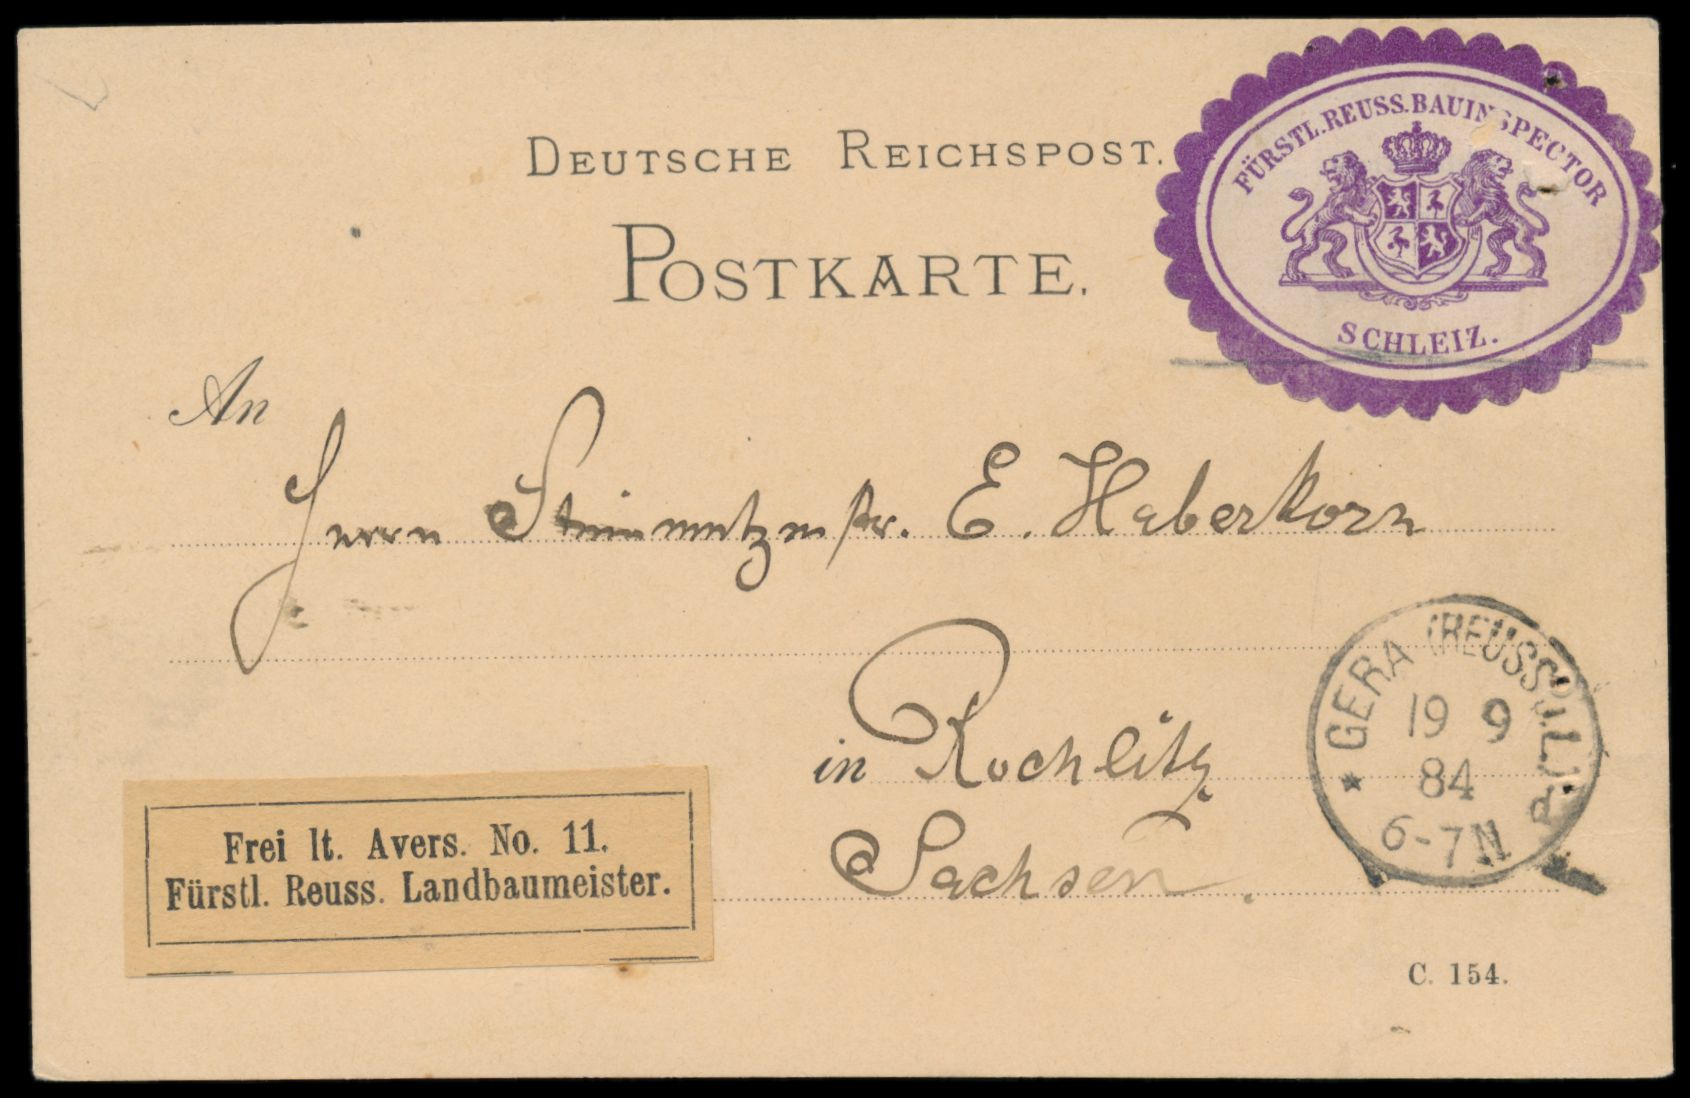 DEUTSCHE REICHSPOST.
POSTKARTE.
FÜRSTL. REUSS. BAUINSPECTOR
SCHLEIZ.
An
Herrn Steinmetzmstr. E. Haberkorn
in Rochlitz
Sachsen.
GERA (REUSS) J.L.P.
19 9
84
6-7N
Frei lt. Avers. No. 11.
Fürstl. Reuss. Landbaumeister.
C. 154.